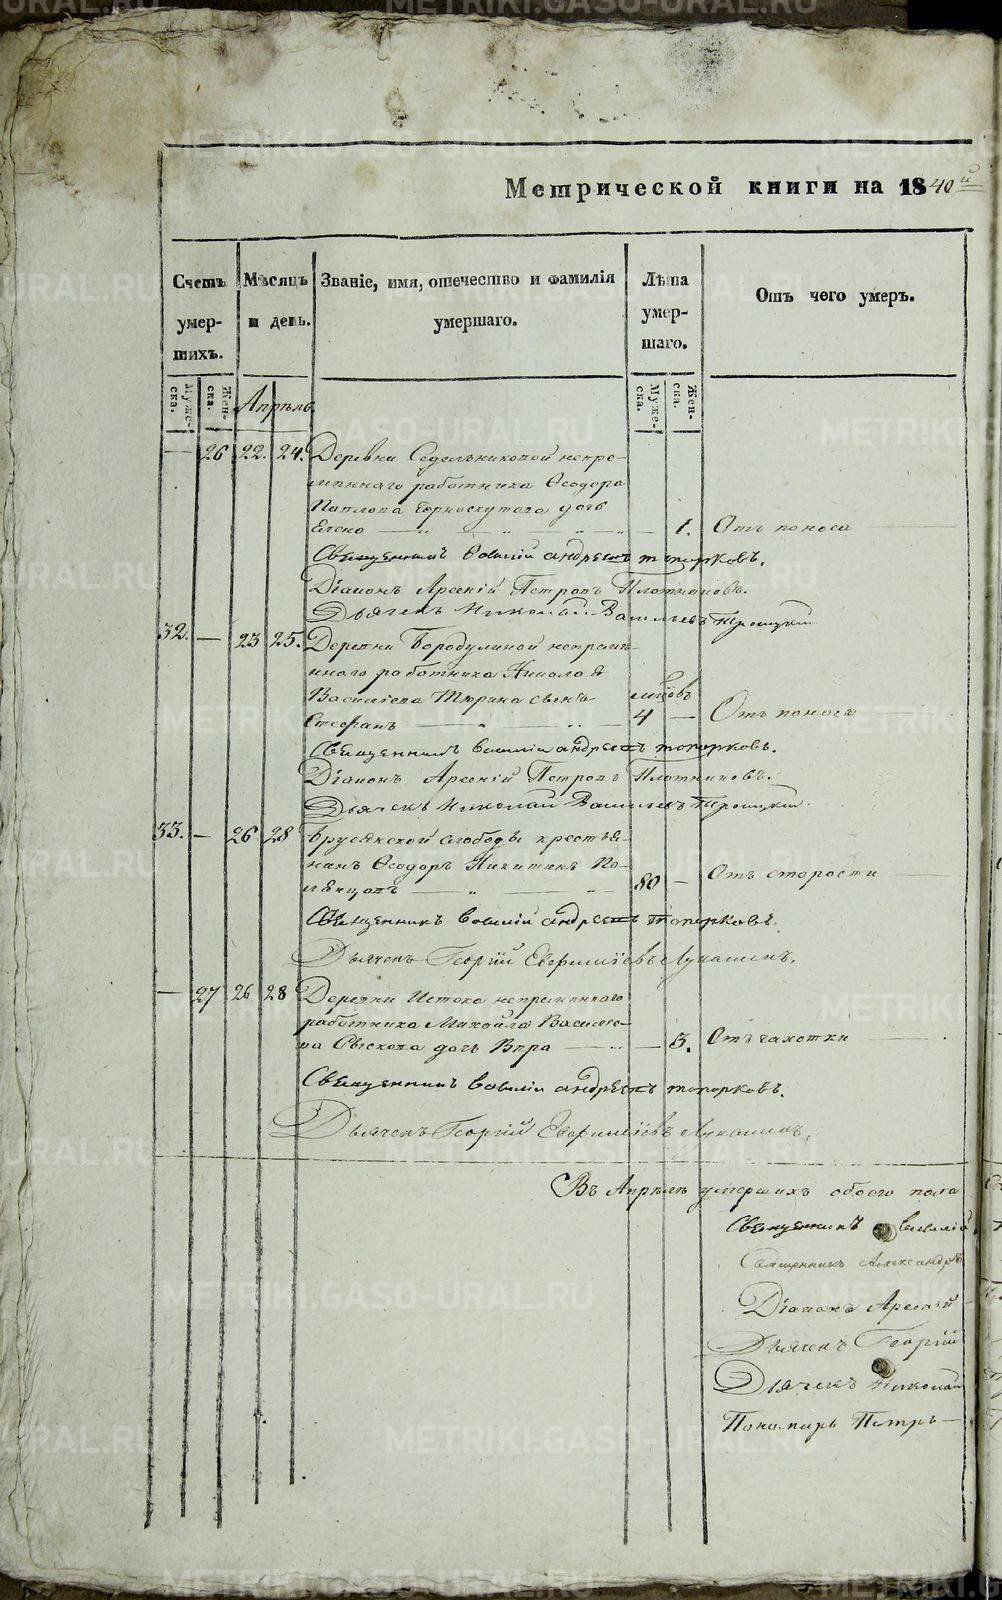 Метрической книги на 1840й
Счетъ умер-шихъ.
Мѣсяцъ и день.
Званіе, имя, отечество и фамилія умершаго.
Лѣта умер-шаго.
Отъ чего умеръ.
Муже-ска.
Жен-ска.
Апрѣль
Муже-ска.
Жен-ска.
— 26 22. 24. Деревни Седельниковой непре-
мѣннаго работника Ѳеодора
Павлова дочь
Елена — — 1. Отъ поноса
Священникъ Василій Андреевъ Топорковъ.
Діаконъ Арсеній Петровъ Плотниковъ.
Дьячекъ Николай Васильевъ Троицкій
32. — 23 25. Деревни Бородулиной непремѣ-
ннаго работника Николая
Васильева Тюрина сынъ
мѣсяцовъ
Стефанъ — 4 — Отъ поноса
Священникъ Василій Андреевъ Топорковъ.
Діаконъ Арсеній Петровъ Плотниковъ.
Дьячекъ Николай Васильевъ Троицкій.
33. — 26 28 Брусянской слободы крестья-
нинъ Ѳеодоръ Никитинъ По-
— 80 — Отъ старости
Священникъ Василій Андреевъ Топорковъ.
Дьячекъ Георгій Евфиміевъ Лукашинъ.
— 27 26 28 Деревни Истока непремѣннаго
работника Михайла Василье-
ва дочь Вѣра — — 3. Отъ чахотки
Священникъ Василій Андреевъ Топорковъ.
Дьячекъ Георгій Евфиміевъ Лукашинъ.
Въ Апрѣлѣ умершихъ обоего пола
Священникъ Василій
Священникъ Александръ
Діаконъ Арсеній
Дьячекъ Георгій
Дьячекъ Николай
Пономарь Петръ
METRIKI.GASO-URAL.RU